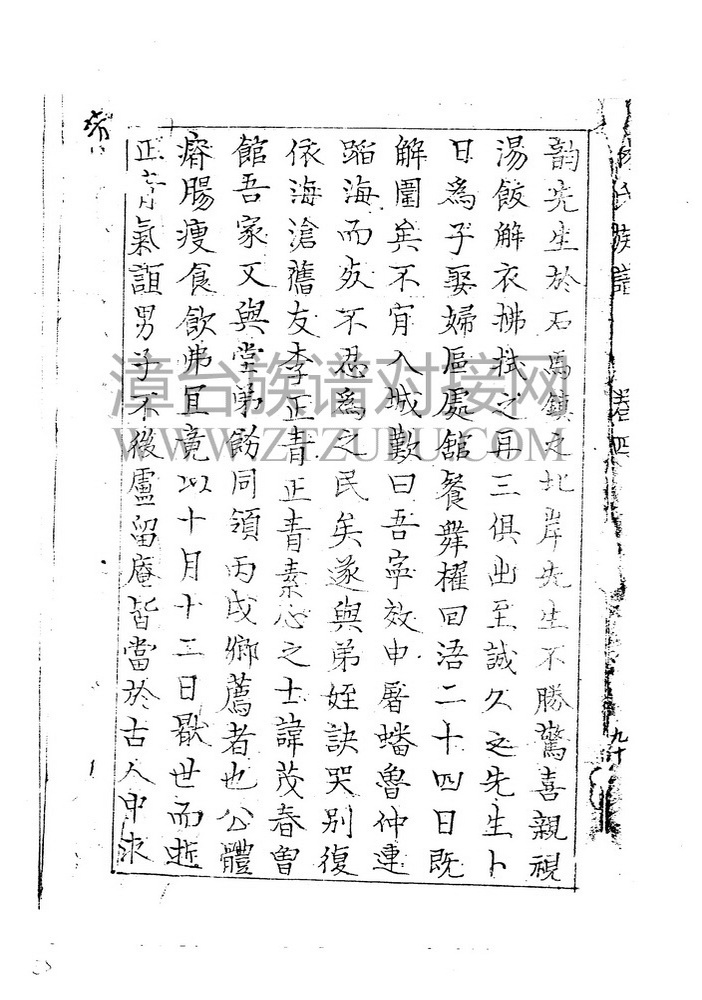 氏族譜 卷四 九十
韵先生於石馬鎮之北岸先生不勝驚喜親視
湯飯解衣拂拭之再三俱出至誠久之先生卜
日為子娶婦區處舘餐舞櫂回浯二十四日既
解圍矣不肯入城歎曰吾寧效申屠蟠魯仲連
蹈海而死不忍為之民矣遂與弟姪訣哭別復
依海滄舊友李正青正青素心之士諱茂春曾
館吾家又與堂弟飭同領丙戌鄉薦者也公體
瘠腸瘦食飲弗宜竟以十月十二日厭世而逝
正青氣誼男子不後盧留庵皆當於古人中求
漳台族谱对接网
WWW.ZTZUPU.COM